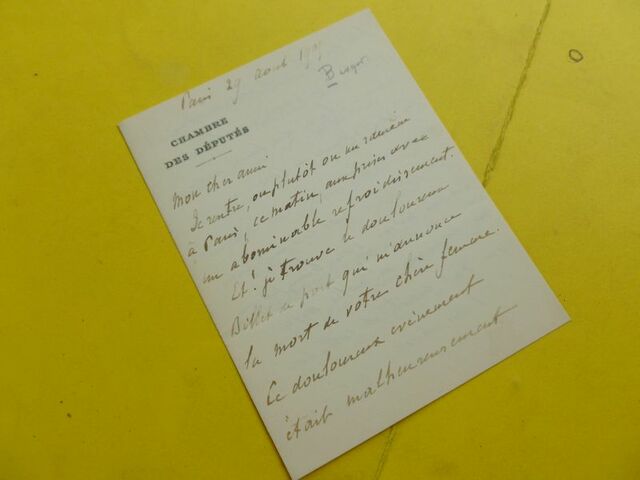 Paris 29 août
Berger
CHAMBRE
DES DÉPUTÉS
Mon cher ami
Je rentre, ou plutôt on me ramène
à Paris, ce matin, aux prises avec
un abominable refroidissement.
Et! je trouve le douloureux
Billet de part qui m'annonce
la mort de votre chère femme.
Ce douloureux événement
était malheureusement